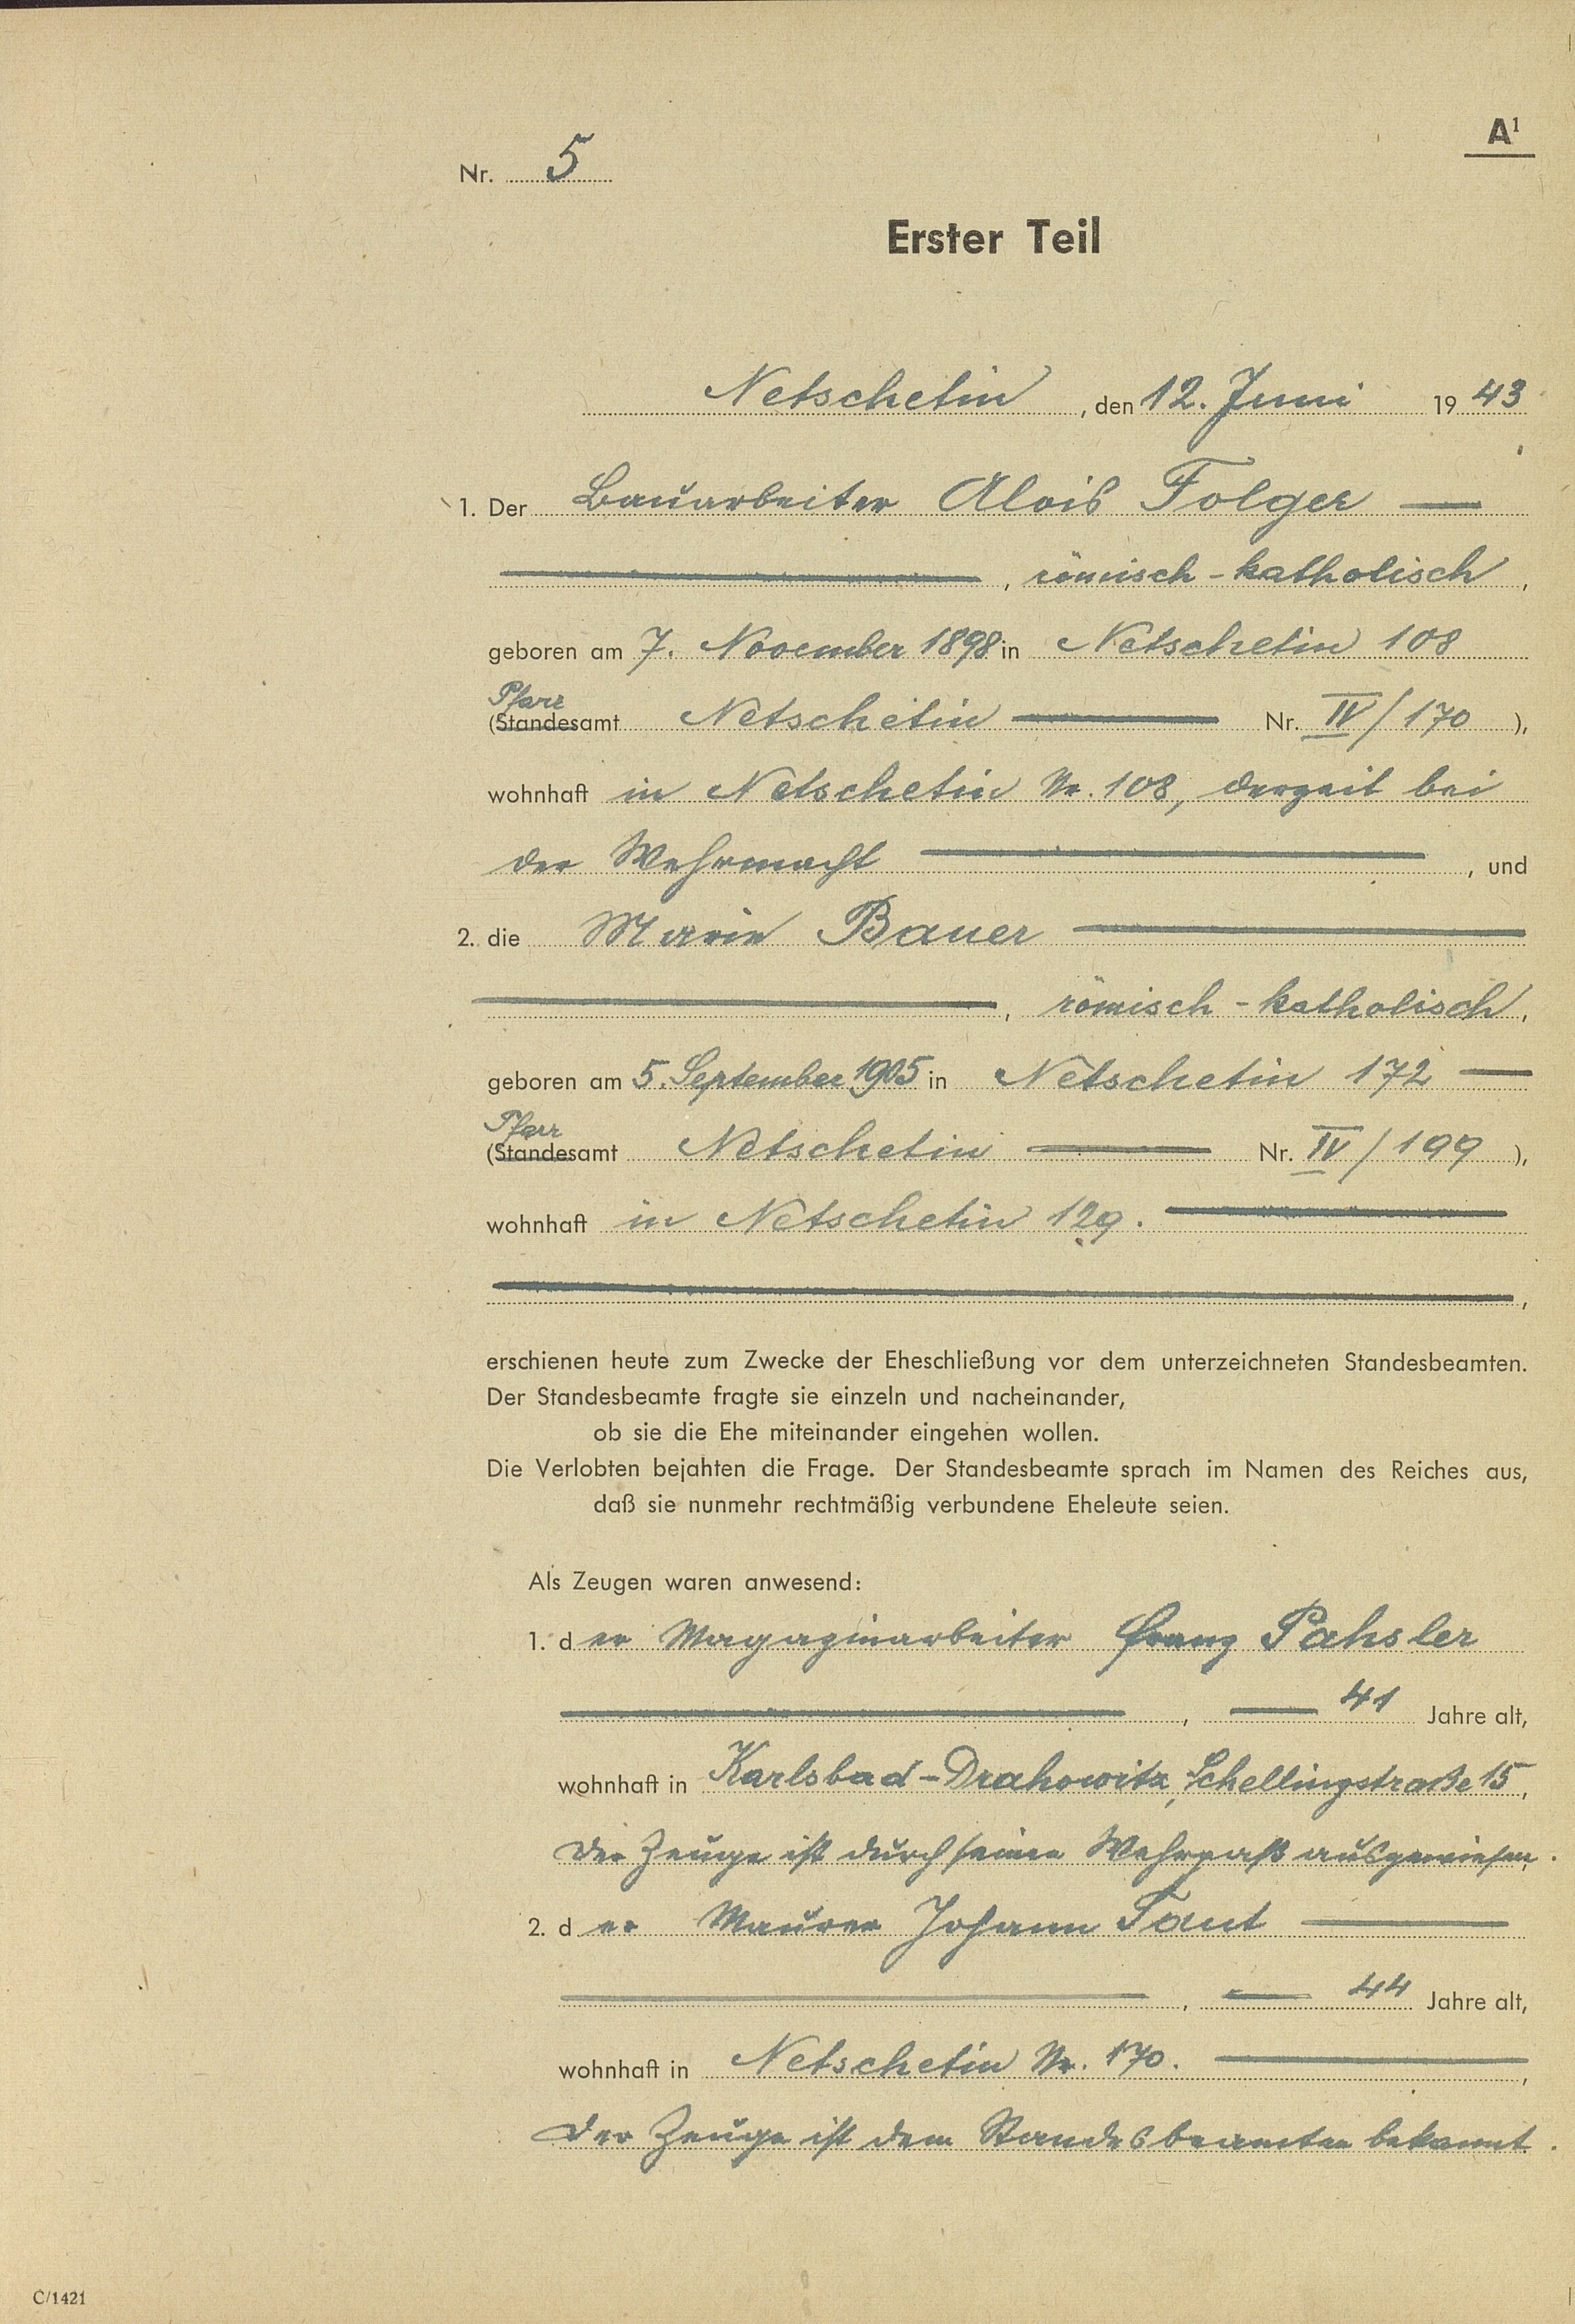 A¹
Nr. 5
Erster Teil
Netschetin, den 12. Juni 1943
1. Der Bauarbeiter Alois Folger —
, römisch-katholisch,
geboren am 7. November 1898 in Netschetin 108
Pfarr
(Standesamt Netschetin — Nr. IV/170),
wohnhaft in Netschetin Nr. 108, derzeit bei
der Wehrmacht —, und
2. die Marie Bauer —
—, römisch-katholisch,
geboren am 5. September 1905 in Netschetin 172 —
Pfarr
(Standesamt Netschetin — Nr. IV/199),
wohnhaft in Netschetin 129. —
—,
erschienen heute zum Zwecke der Eheschließung vor dem unterzeichneten Standesbeamten.
Der Standesbeamte fragte sie einzeln und nacheinander,
ob sie die Ehe miteinander eingehen wollen.
Die Verlobten bejahten die Frage. Der Standesbeamte sprach im Namen des Reiches aus,
daß sie nunmehr rechtmäßig verbundene Eheleute seien.
Als Zeugen waren anwesend:
1. der Magazinarbeiter Franz Pahsler
—, — 41 Jahre alt,
wohnhaft in Karlsbad-Drahowitz, Schellingstraße 15,
Der Zeuge ist durch seinen Wehrpaß ausgewiesen.
2. der Maurer Johann Taut —
—, — 44 Jahre alt,
wohnhaft in Netschetin Nr. 170. —,
Der Zeuge ist dem Standesbeamten bekannt.
C/1421